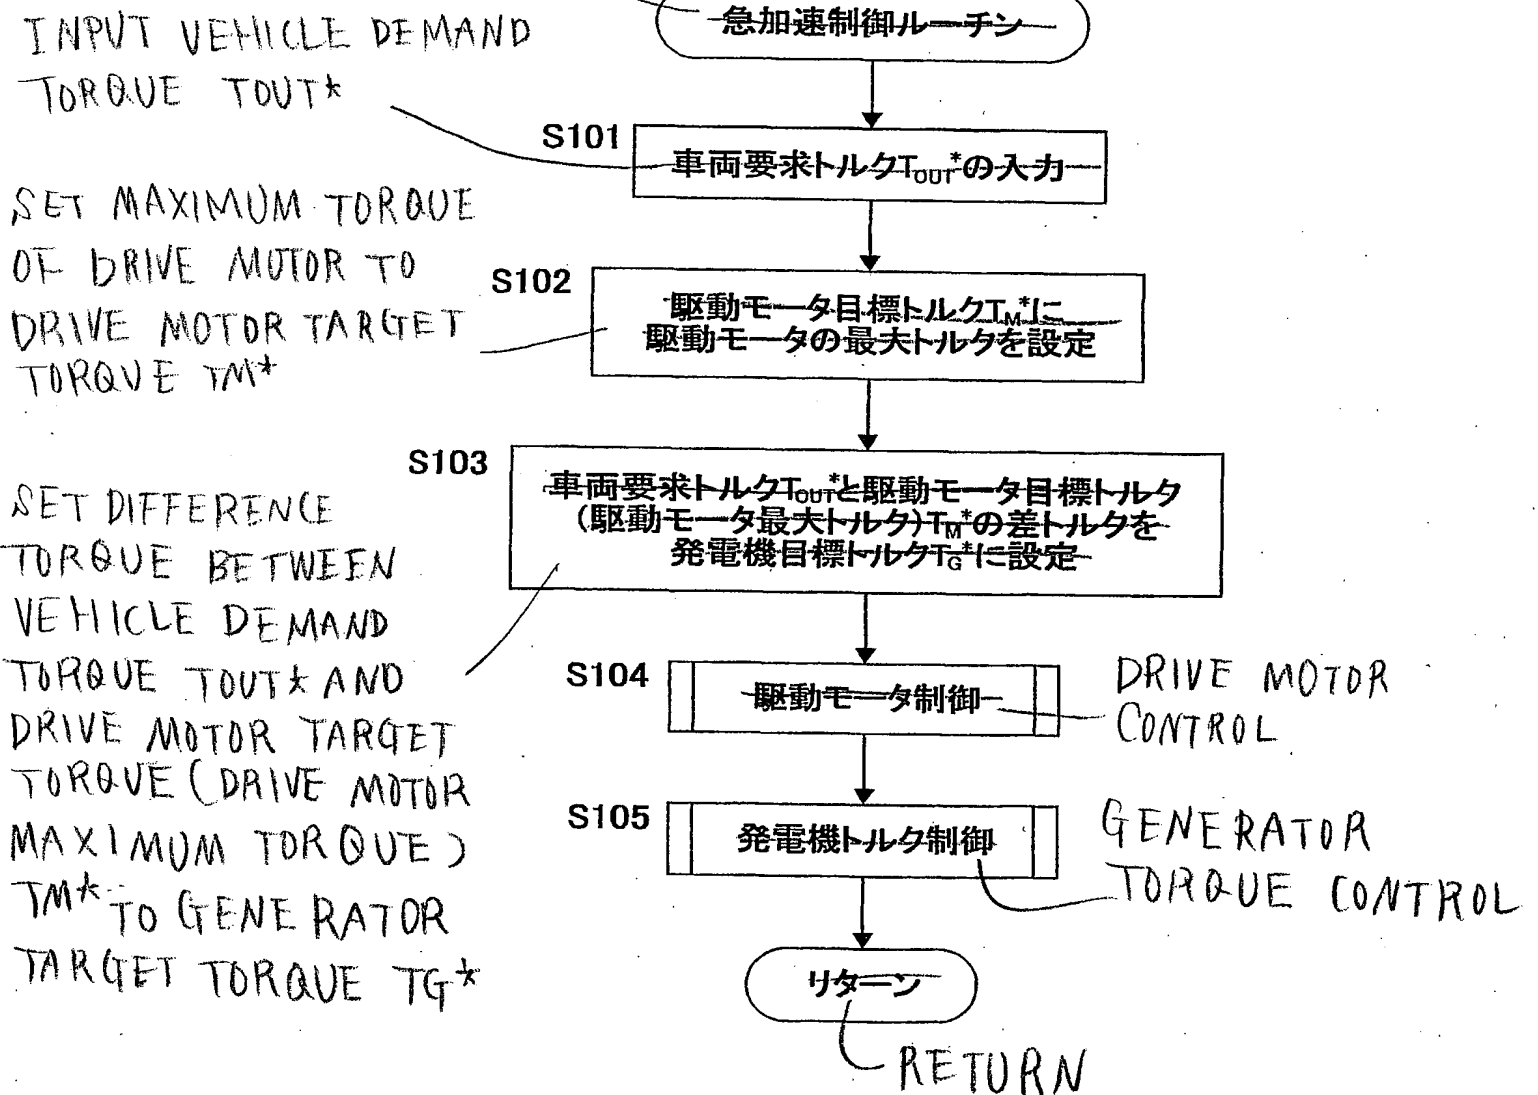 急加速制御ルーチン
INPUT VEHICLE DEMAND
TORQUE TOUT*
S101
車両要求トルクTOUT*の入力
SET MAXIMUM TORQUE
OF DRIVE MOTOR TO
DRIVE MOTOR TARGET
TORQUE TM*
S102
駆動モータ目標トルクTM*に
駆動モータの最大トルクを設定
S103
車両要求トルクTOUT*と駆動モータ目標トルク
(駆動モータ最大トルク)TM*の差トルクを
発電機目標トルクTG*に設定
SET DIFFERENCE
TORQUE BETWEEN
VEHICLE DEMAND
TORQUE TOUT* AND
DRIVE MOTOR TARGET
TORQUE (DRIVE MOTOR
MAXIMUM TORQUE)
TM* TO GENERATOR
TARGET TORQUE TG*
S104
駆動モータ制御
DRIVE MOTOR
CONTROL
S105
発電機トルク制御
GENERATOR
TORQUE CONTROL
リターン
RETURN